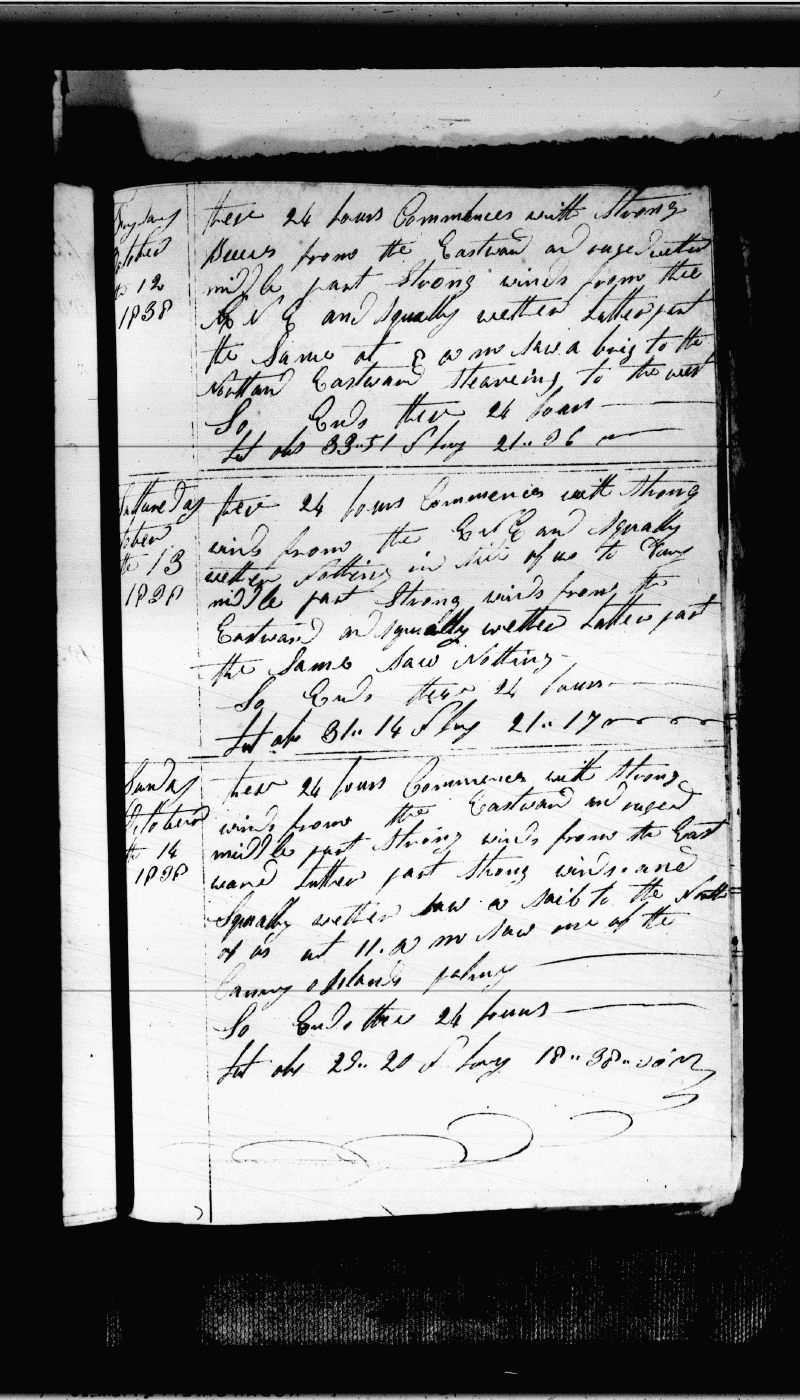 Fryday
October
the 12
1838
these 24 hours Commences with Strong
Breses from the Eastward and ruged wether
middle part Strong winds from the
N E and Squally wether Latter part
the Same at 8 a m Saw a brig to the
Northard Eastward Stearing to the west
So Ends these 24 hours
Lat obs 33..51 Long 21..36
Satture Day
October
the 13
1838
these 24 hours Commences with Strong
winds from the E N E and Squally
wether Nothing in Site of us to Day
middle part Strong winds from the
Eastward and Squally wether Latter part
the Same Saw Nothing
So Ends these 24 hours
Lat obs 31..14 Long 21..17
Sunday
October
the 14
1838
these 24 hours Commences with Strong
winds from the Eastward and ruged
middle part Strong winds from the East
ward Latter part Strong winds and
Squally wether Saw a Sail to the North
of us at 11. a m Saw one of the
Canary Islands
So Ends these 24 hours
Lat obs 29..20 Long 18..38